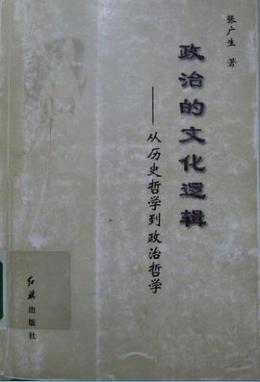 张广生 著
政治的文化逻辑
——从历史哲学到政治哲学
红旗出版社